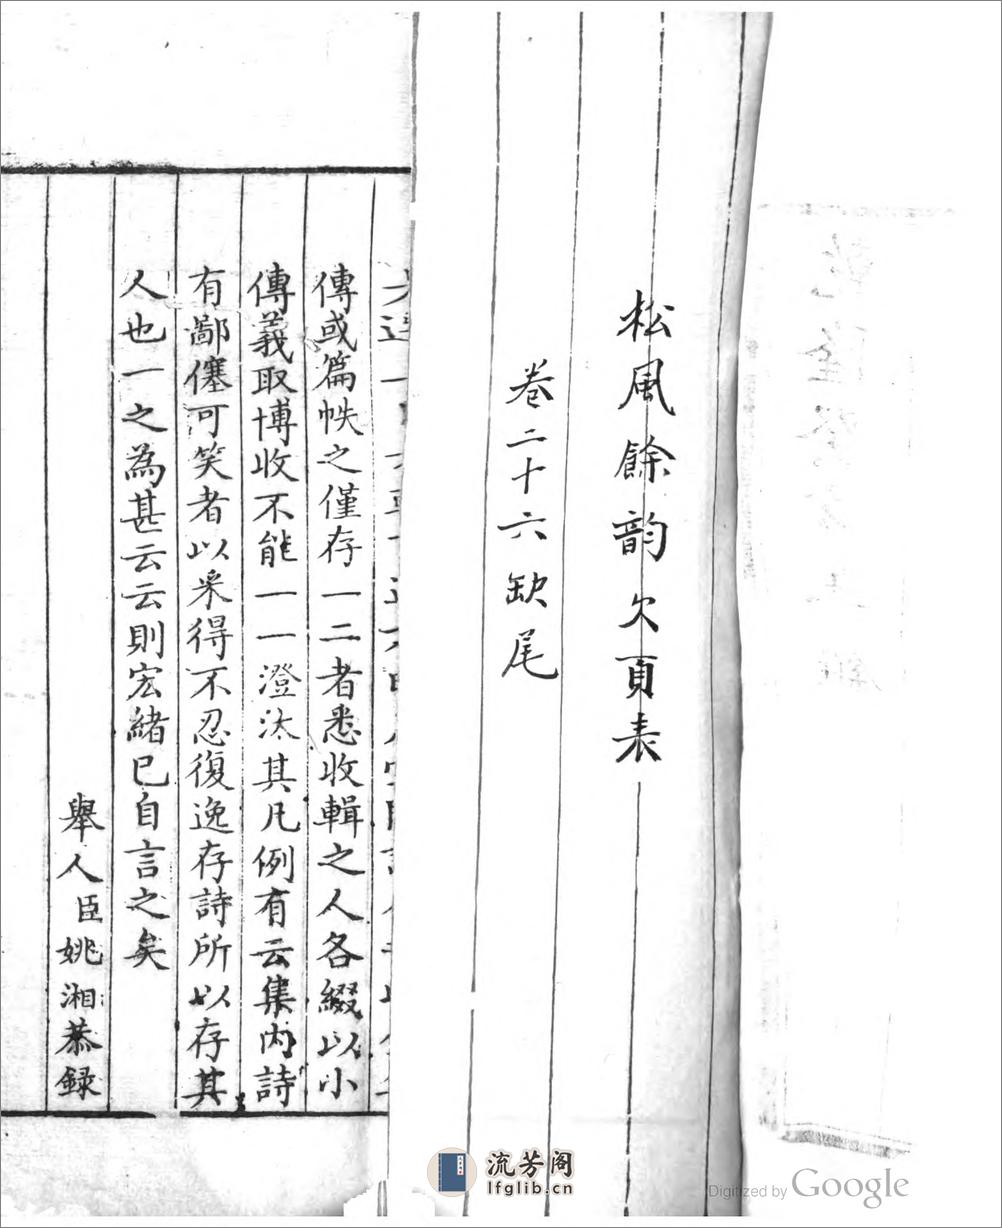 松風餘韵欠頁表
卷二十六缺尾
傳或篇帙之僅存一二者悉收輯之人各綴以小
傳義取博收不能一一澄汰其凡例有云集内詩
有鄙僿可笑者以采得不忍復逸存詩所以存其
人也一之為甚云云則宏緒已自言之矣
舉人臣姚湘恭録
流芳阁
lfglib.cn
Digitized by Google